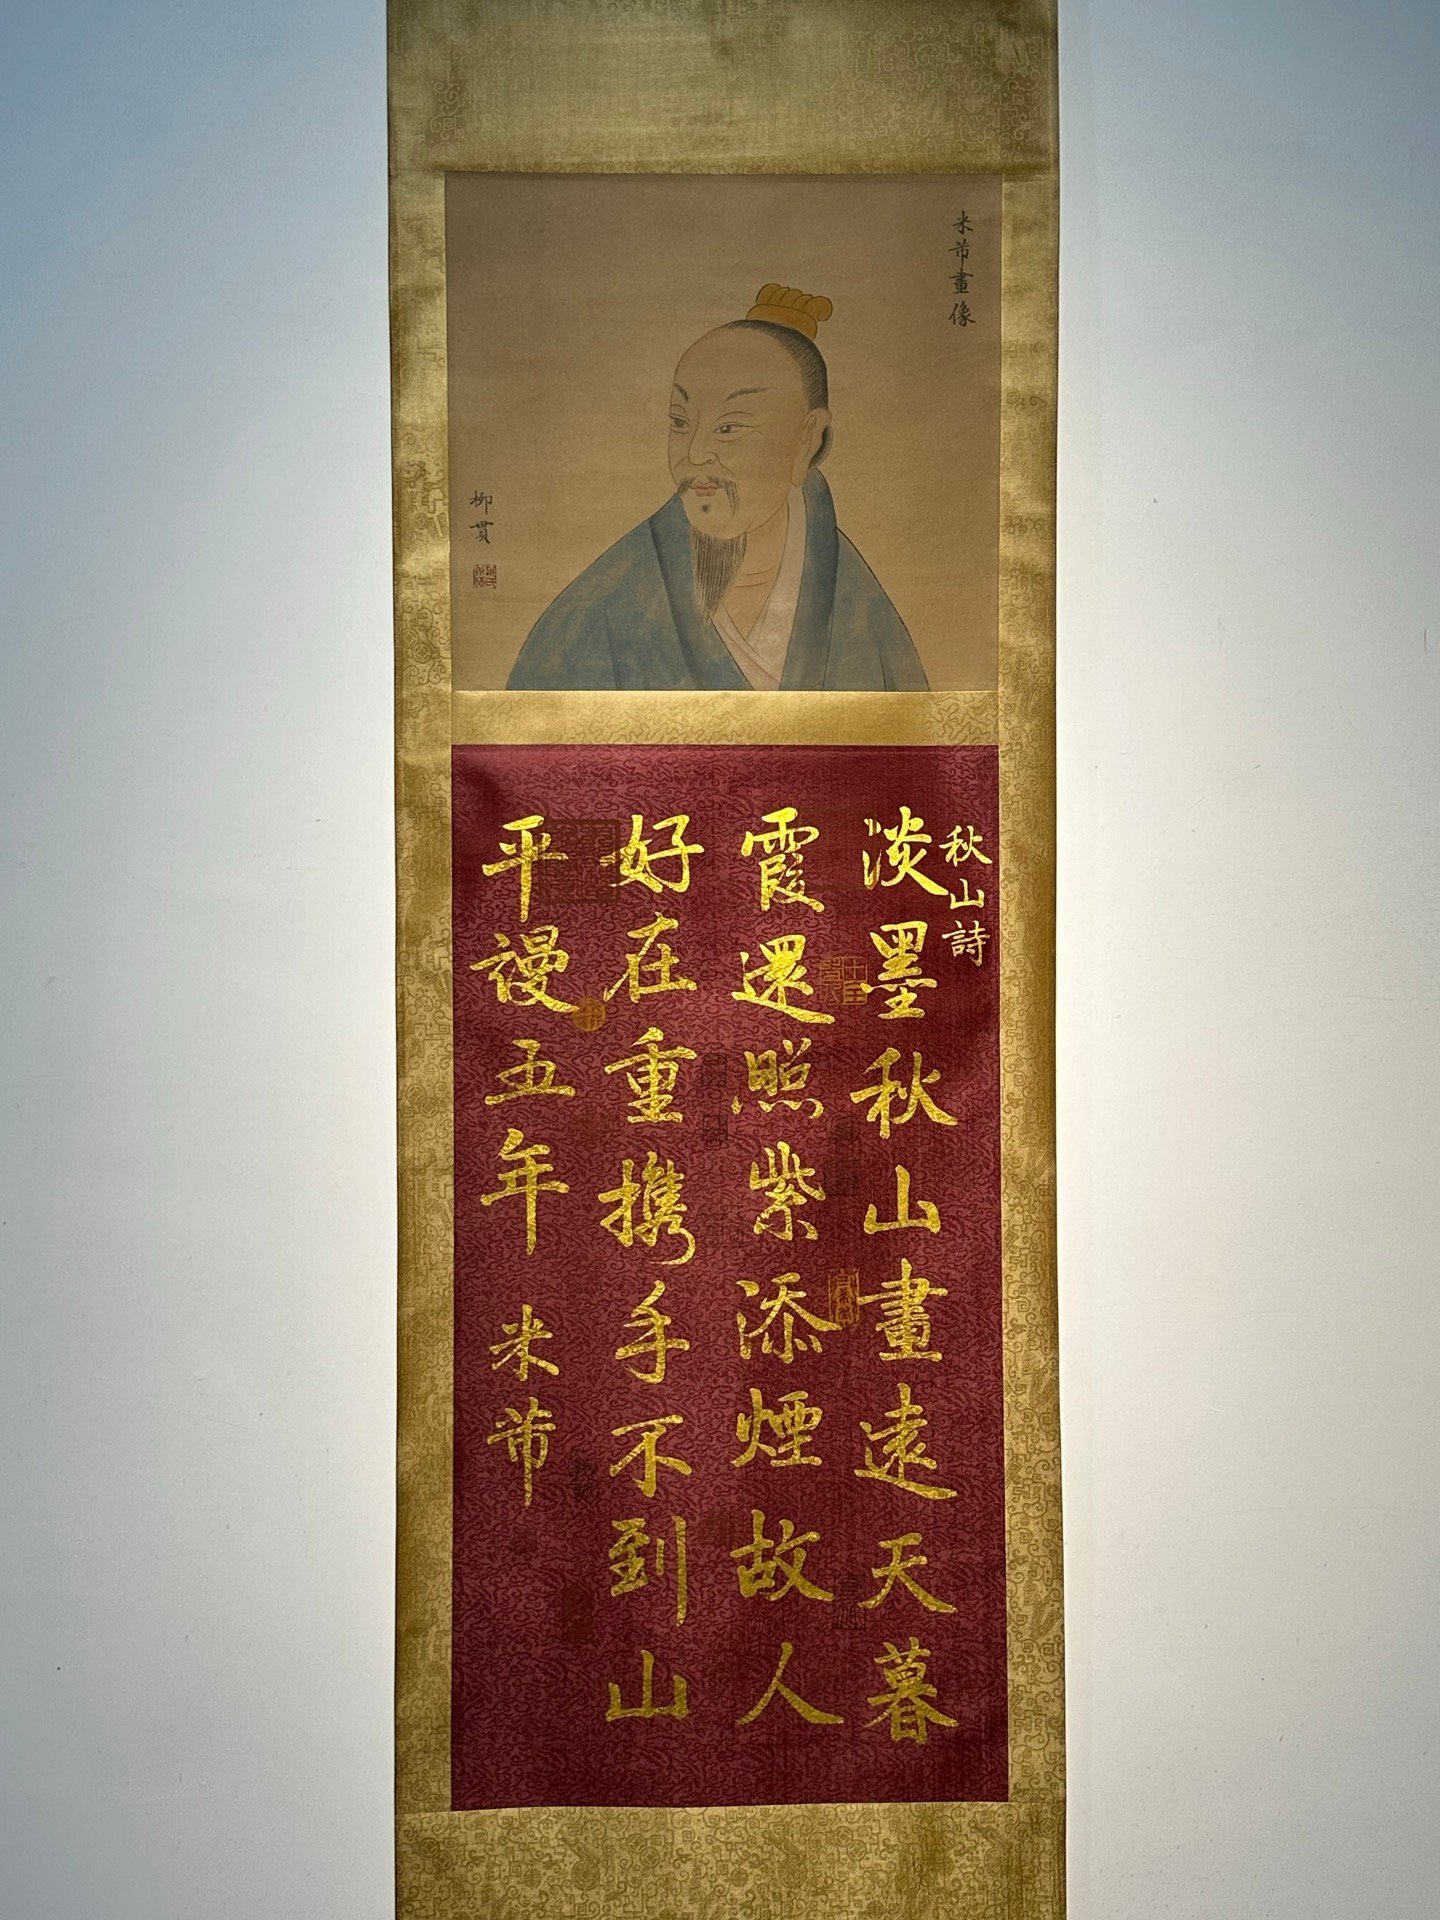 米芾畫像
柳貫
秋山詩
淡墨秋山畫遠天暮
霞還照紫添煙故人
好在重携手不到山
平謾五年
米芾